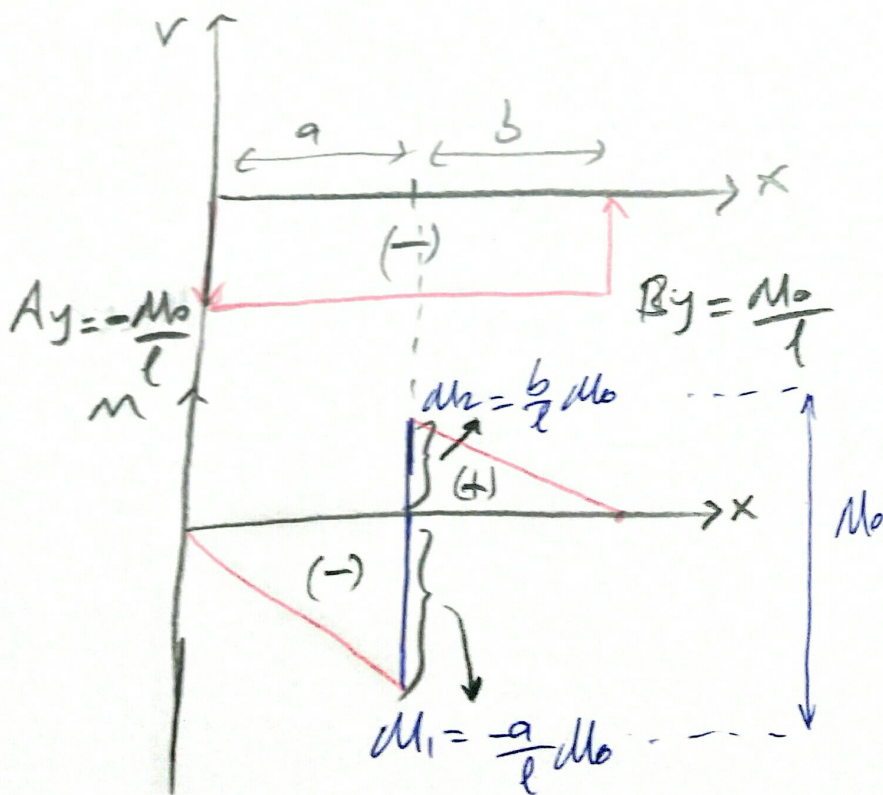 V
a b
x
(-)
Ay = -Mo/l By = Mo/l
M
M2 = b/l Mo
(+)
x
(-)
Mo
M1 = -a/l Mo